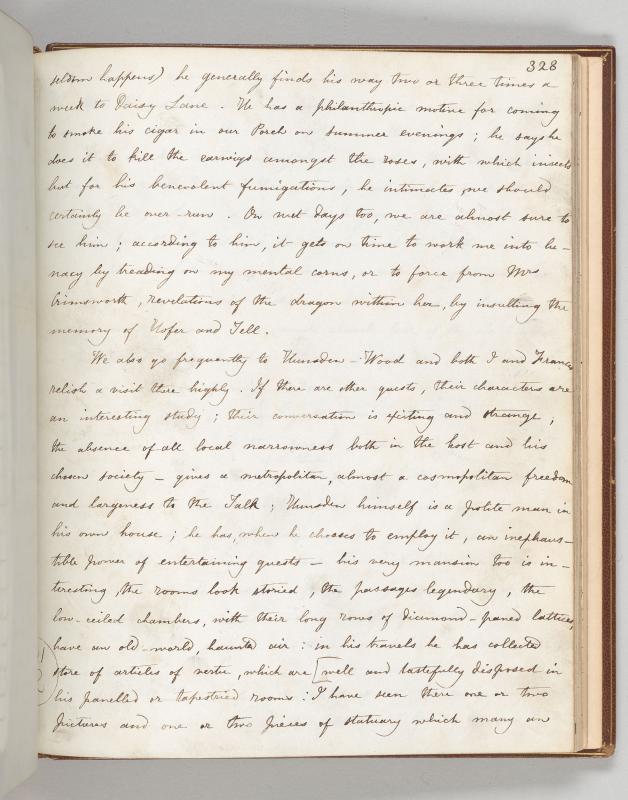 328
seldom happens) he generally finds his way two or three times a
week to Daisy Lane. He has a philanthropic motive for coming
to smoke his cigar in our Porch on summer evenings; he says he
does it to kill the earwigs amongst the roses, with which insects
but for his benevolent fumigations, he intimates, we should
certainly be over-run. On wet days too, we are almost sure to
see him; according to him, it gets on time to work me into lu-
nacy by treading on my mental corns, or to force from Mrs
Crimsworth, revelations of the dragon within her, by insulting the
memory of Hofer and Tell.
We also go frequently to Hunsden-Wood and both I and Frances
relish a visit there highly. If there are other guests, their characters are
an interesting study; their conversation is exciting and strange;
the absence of all local narrowness both in the host and his
chosen society – gives a metropolitan, almost a cosmopolitan freedom
and largeness to the Talk; Hunsden himself is a polite man in
his own house; he has, when he chooses to employ it, an inexhaus-
tible power of entertaining guests – his very mansion too is in-
teresting, the rooms look storied, the passages legendary, the
low-ceiled chambers, with their long rows of diamond-paned lattices,
have an old-world, haunted air: in his travels he has collected
store of articles of vertu, which are [well and tastefully disposed in
his panelled or tapestried rooms: I have seen there one or two
pictures and one or two pieces of statuary which many an